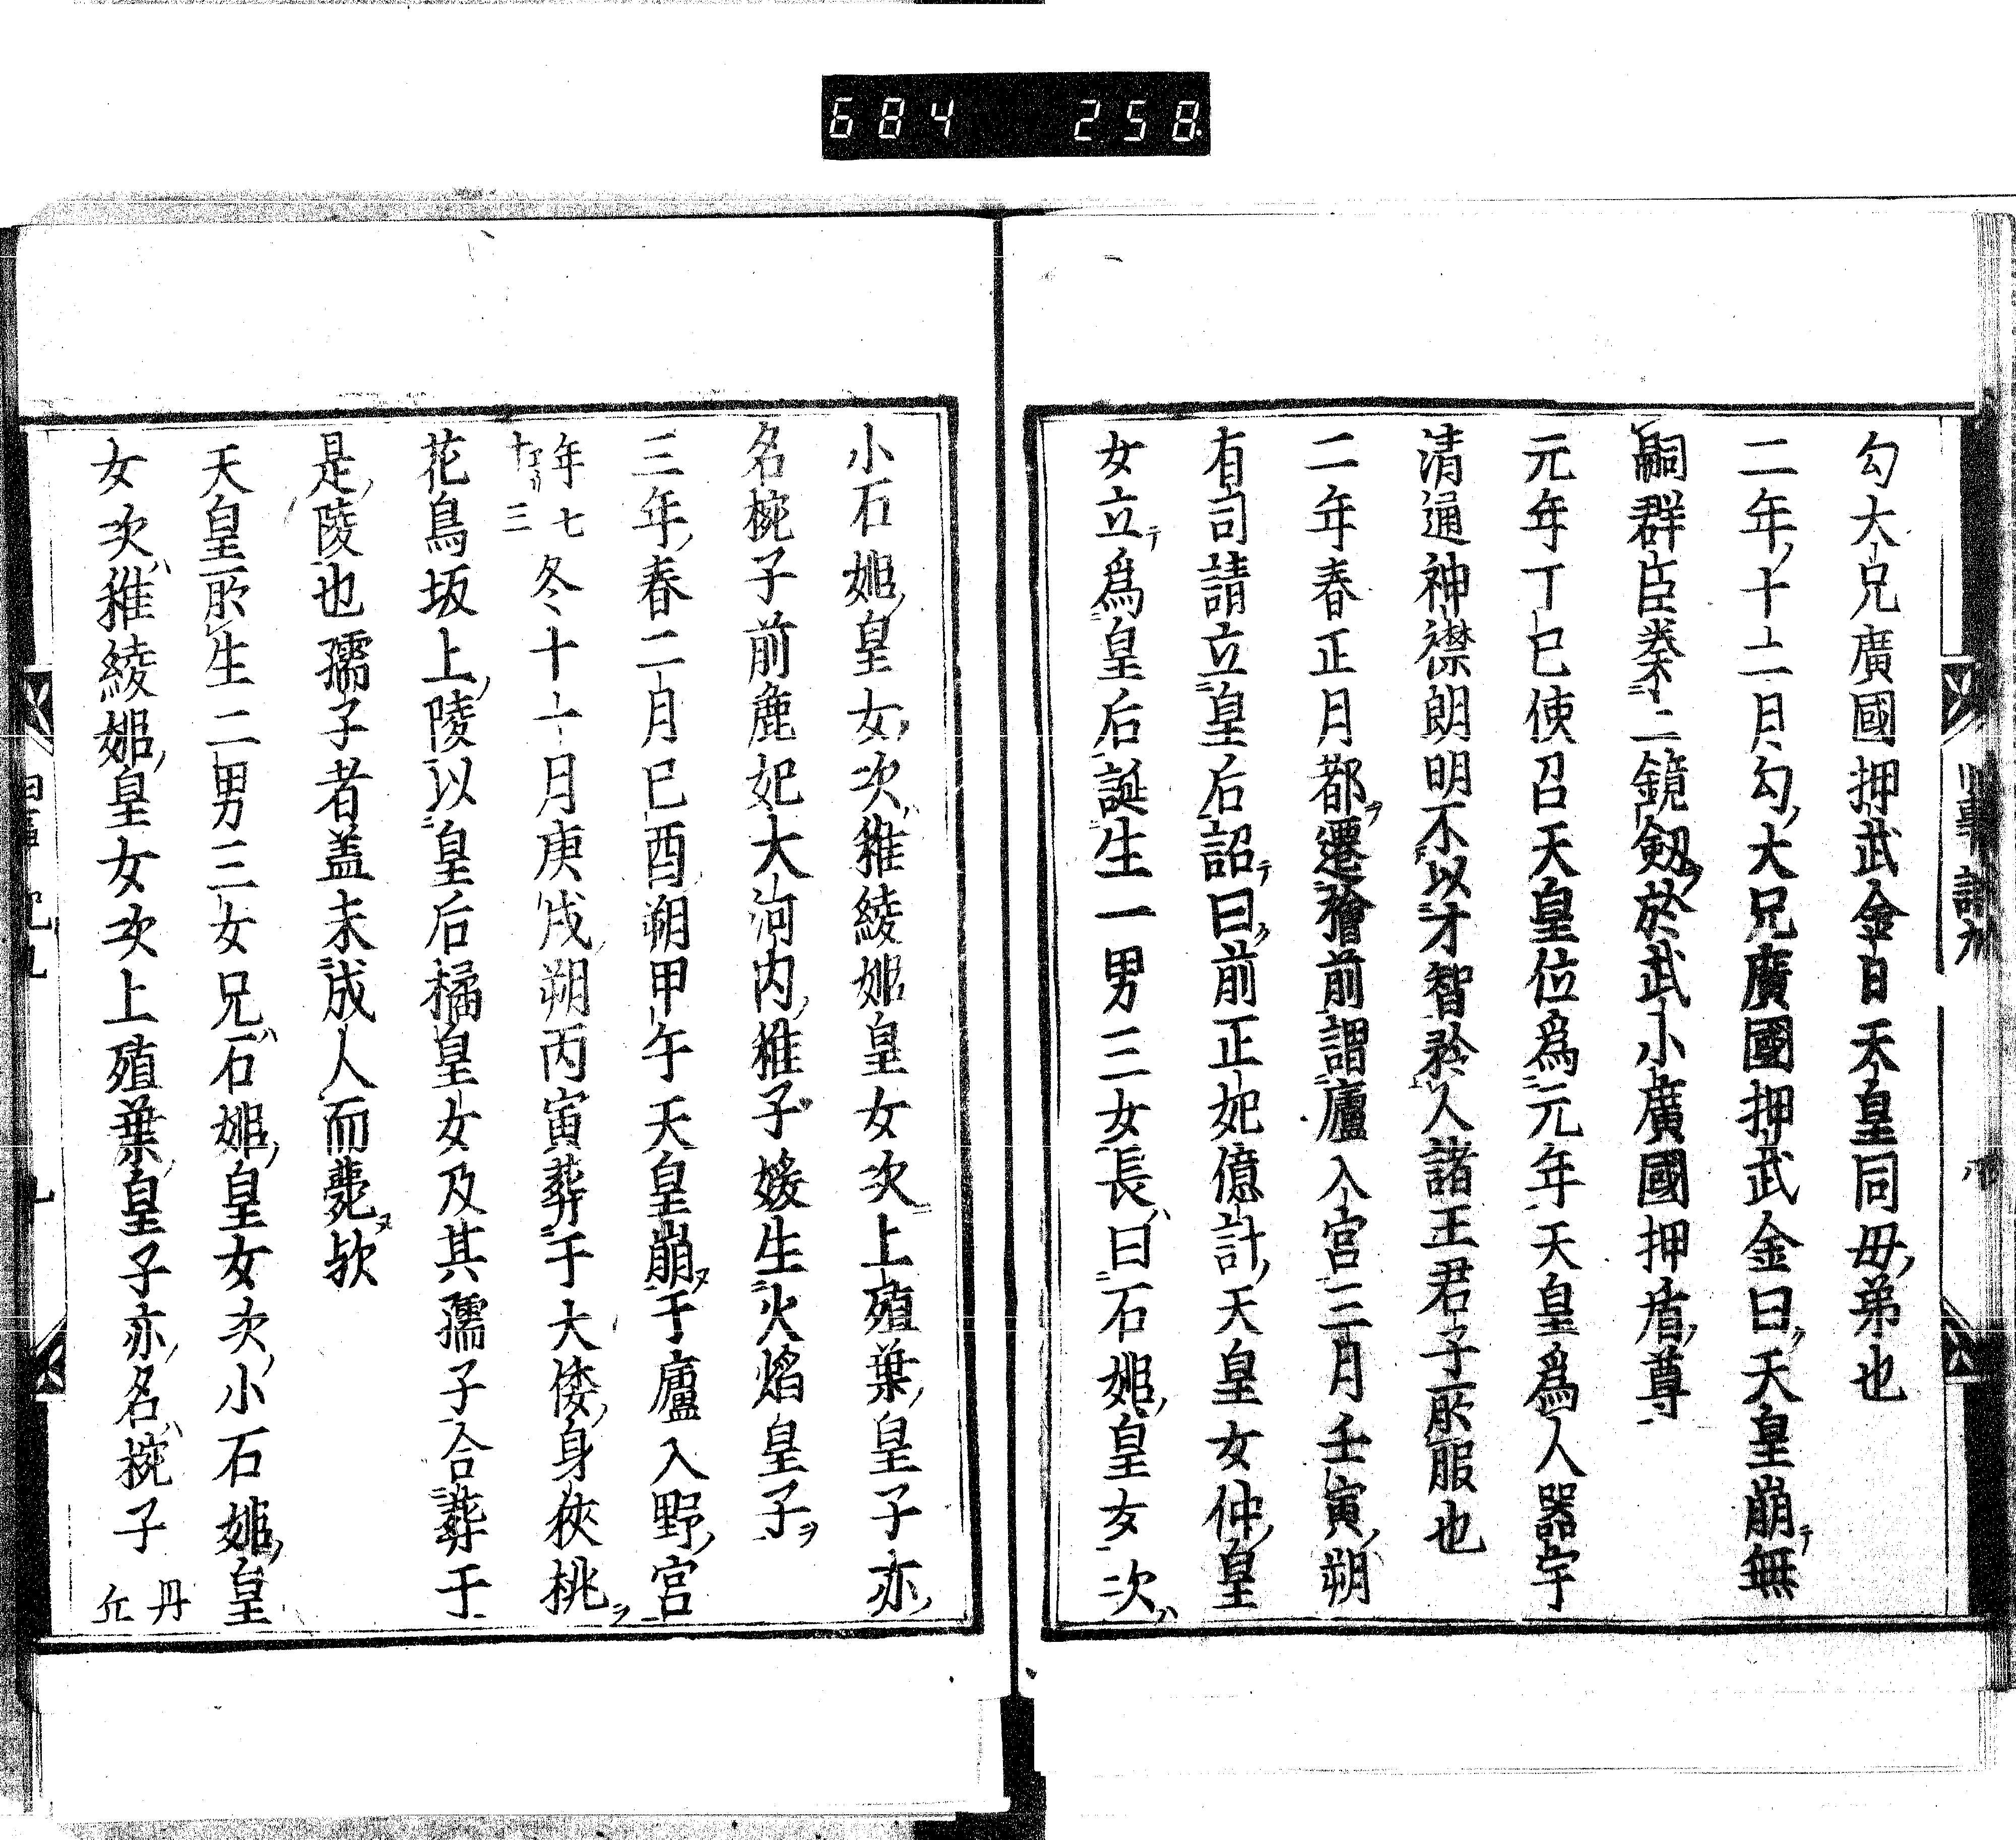 684 258
勾大兄廣國押武金日天皇同母弟也
二年十二月勾大兄廣國押武金日天皇崩無
嗣群臣奏二鏡劔於武小廣國押盾尊
元年丁巳使召天皇位爲元年天皇爲人器宇
清通神襟朗明不以才智矜人諸王君子所服也
二年春正月都遷檜前謂廬入宮三月壬寅朔
有司請立皇后詔曰前正妃億計天皇女仲皇
女立爲皇后誕生一男三女長曰石姫皇女次
小石姫皇女次稚綾姫皇女次上殖葉皇子亦
名椀子前鹿妃大河内稚子媛生火焰皇子
三年春二月己酉朔甲午天皇崩于廬入野宮
年七十三冬十一月庚戌朔丙寅葬于大倭身狹桃
花鳥坂上陵以皇后橘皇女及其孺子合葬于
是陵也孺子者盖未成人而薨歟
天皇所生二男三女兄石姫皇女次小石姫皇
女次稚綾姫皇女次上殖葉皇子亦名椀子丹丘